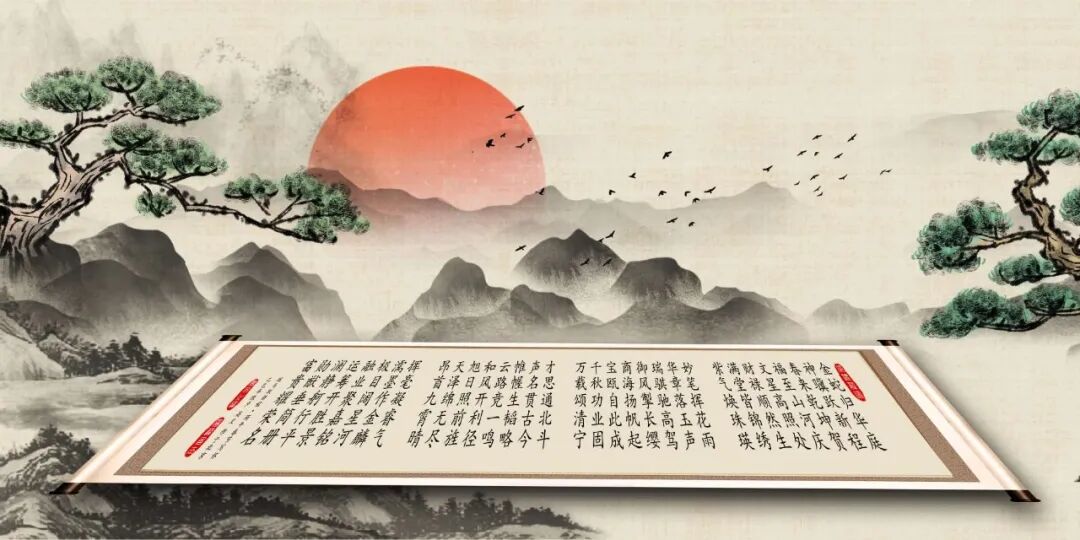 金蛇归华庭
神曜跃新程
泰来乾坤贺
福至山河庆
文星高照处
财禄顺然生
满堂皆锦绣
紫气焕珠瑛
妙笔挥花雨
华章落玉声
瑞骐驰高驾
御风犁长缨
商海扬帆起
宝瓯自此成
千秋功业固
万载颂清宁
才思通北斗
声名贯古今
惟幄生韬略
云路竞一鸣
和风开利径
旭日照前旌
天泽绵无尽
昂首九霄晴
挥毫凝睿气
濡墨作金麟
权目阔星河
融业聚嘉铭
运筹开胜景
澜静舸行平
勋猷垂简册
富贵耀荣石